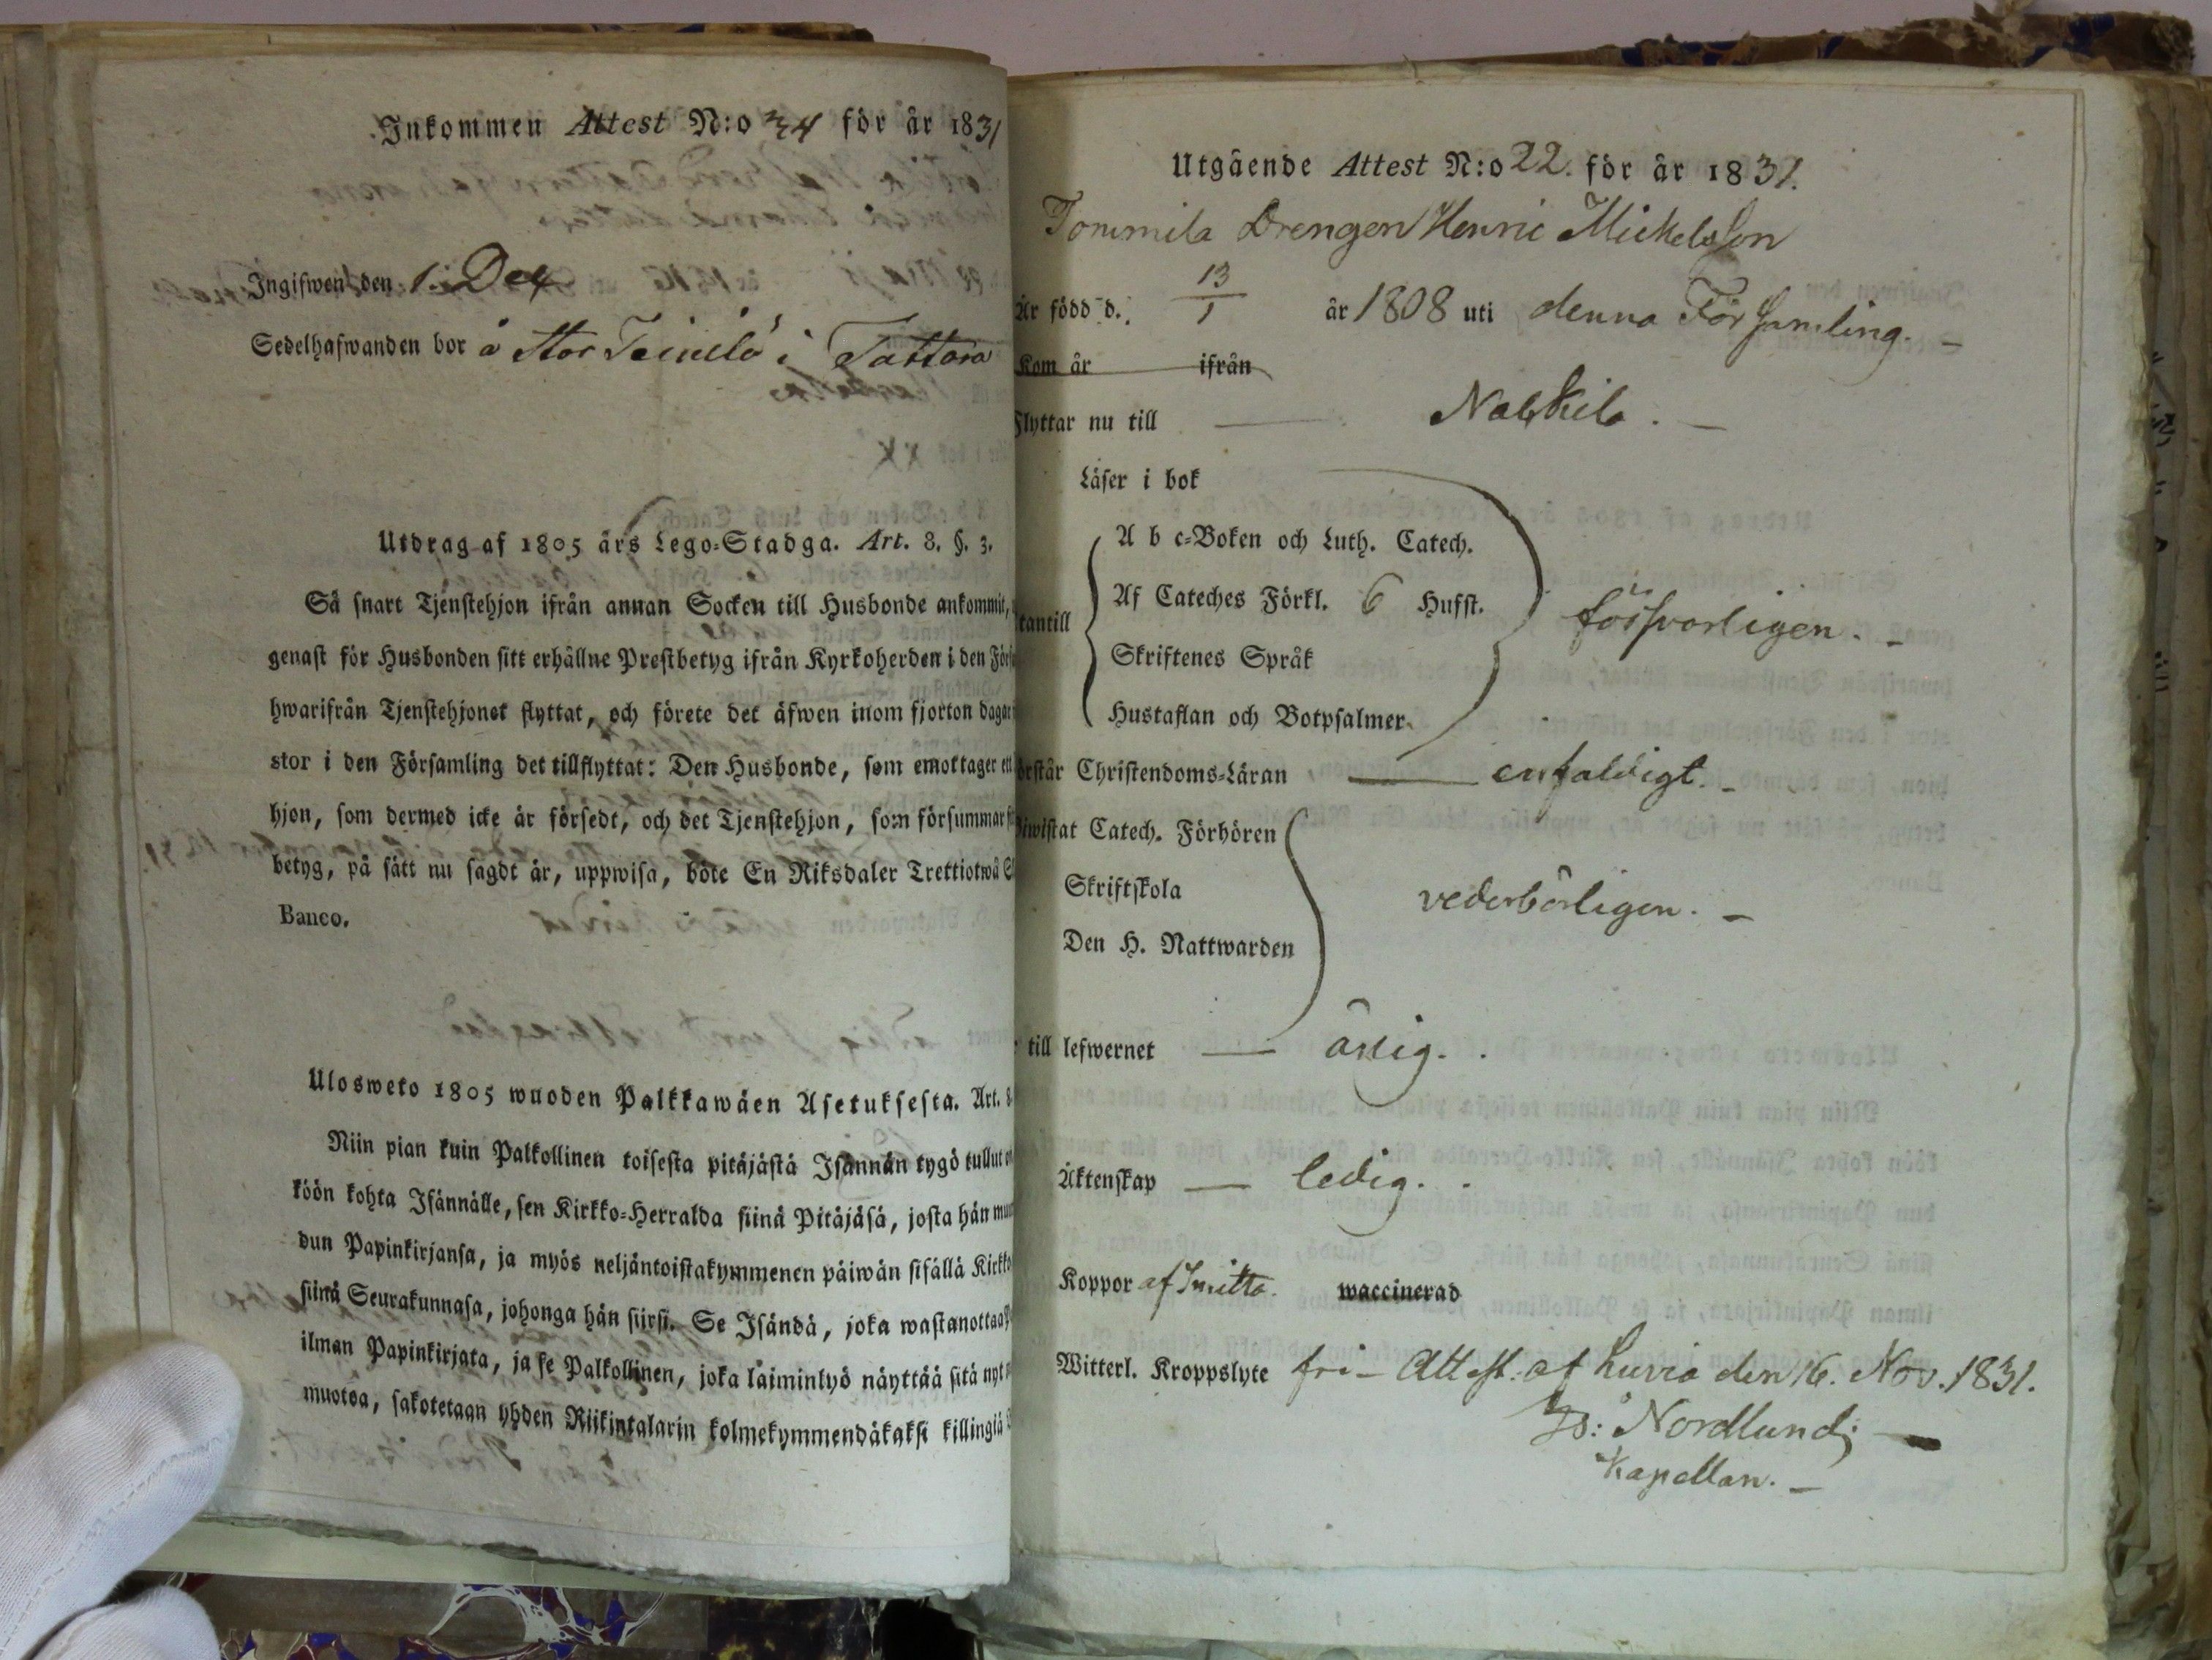 Inkommen Attest N:o 34 för år 1831
Ingifwen den 1. Dec
Sedelhafwanden bor å Stor Teinilö i Tattara
Utdrag af 1805 års Lego-Stadga. Art. 8. §. 3.
Så snart Tjenstehjon ifrån annan Socken till Husbonde ankommit,
genast för Husbonden sitt erhållne Prestbetyg ifrån Kyrkoherden i den
hwarifrån Tjenstehjonet flyttat, och förete det äfwen inom fjorton dagar
stor i den Församling det tillflyttat: Den Husbonde, som emottager
hjon, som dermed icke är försedt, och det Tjenstehjon, som försummar
betyg, på sätt nu sagdt är, uppwisa, böte En Riksdaler Trettiotwå
Banco.
Ulosweto 1805 wuoden Palkkawäen Asetuksesta. Art. 8
Niin pian kuin Palkollinen toisesta pitäjästä Isännän tygö tullut
köön kohta Isännälle, sen Kirkko-Herralda siinä Pitäjäsä, josta hän
dun Papinkirjansa, ja myös neljäntoistakymmenen päiwän sisällä
siinä Seurakunnasa, johonga hän siirsi. Se Isändä, joka wastanottaa
ilman Papinkirjata, ja se Palkollinen, joka laiminlyö näyttää sitä nyt
muotoa, sakotetaan yhden Riikintalarin kolmekymmendäkaksi killingiä
Utgående Attest N:o 22. för år 1831.
Tommila Drengen Henric Mickelsson
Är född d. 13/1 år 1808 uti denna Församling.
Kom år ifrån
Flyttar nu till Nakkila.
Läser i bok
A b c-Boken och Luth. Catech.
Af Cateches Förkl. 6 Hufst.
Utantill försvarligen.
Skriftenes Språk
Hustaflan och Botpsalmer
Förstår Christendoms-Läran enfaldigt.
Biwistat Catech. Förhören
Skriftskola vederbörligen.
Den H. Nattwarden
till lefwernet ärlig.
Äktenskap ledig.
Koppor af Smitta. waccinerad
Witterl. Kroppslyte fri - Attest: af Luvia den 16. Nov. 1831.
Nordlund;
Kapellan.